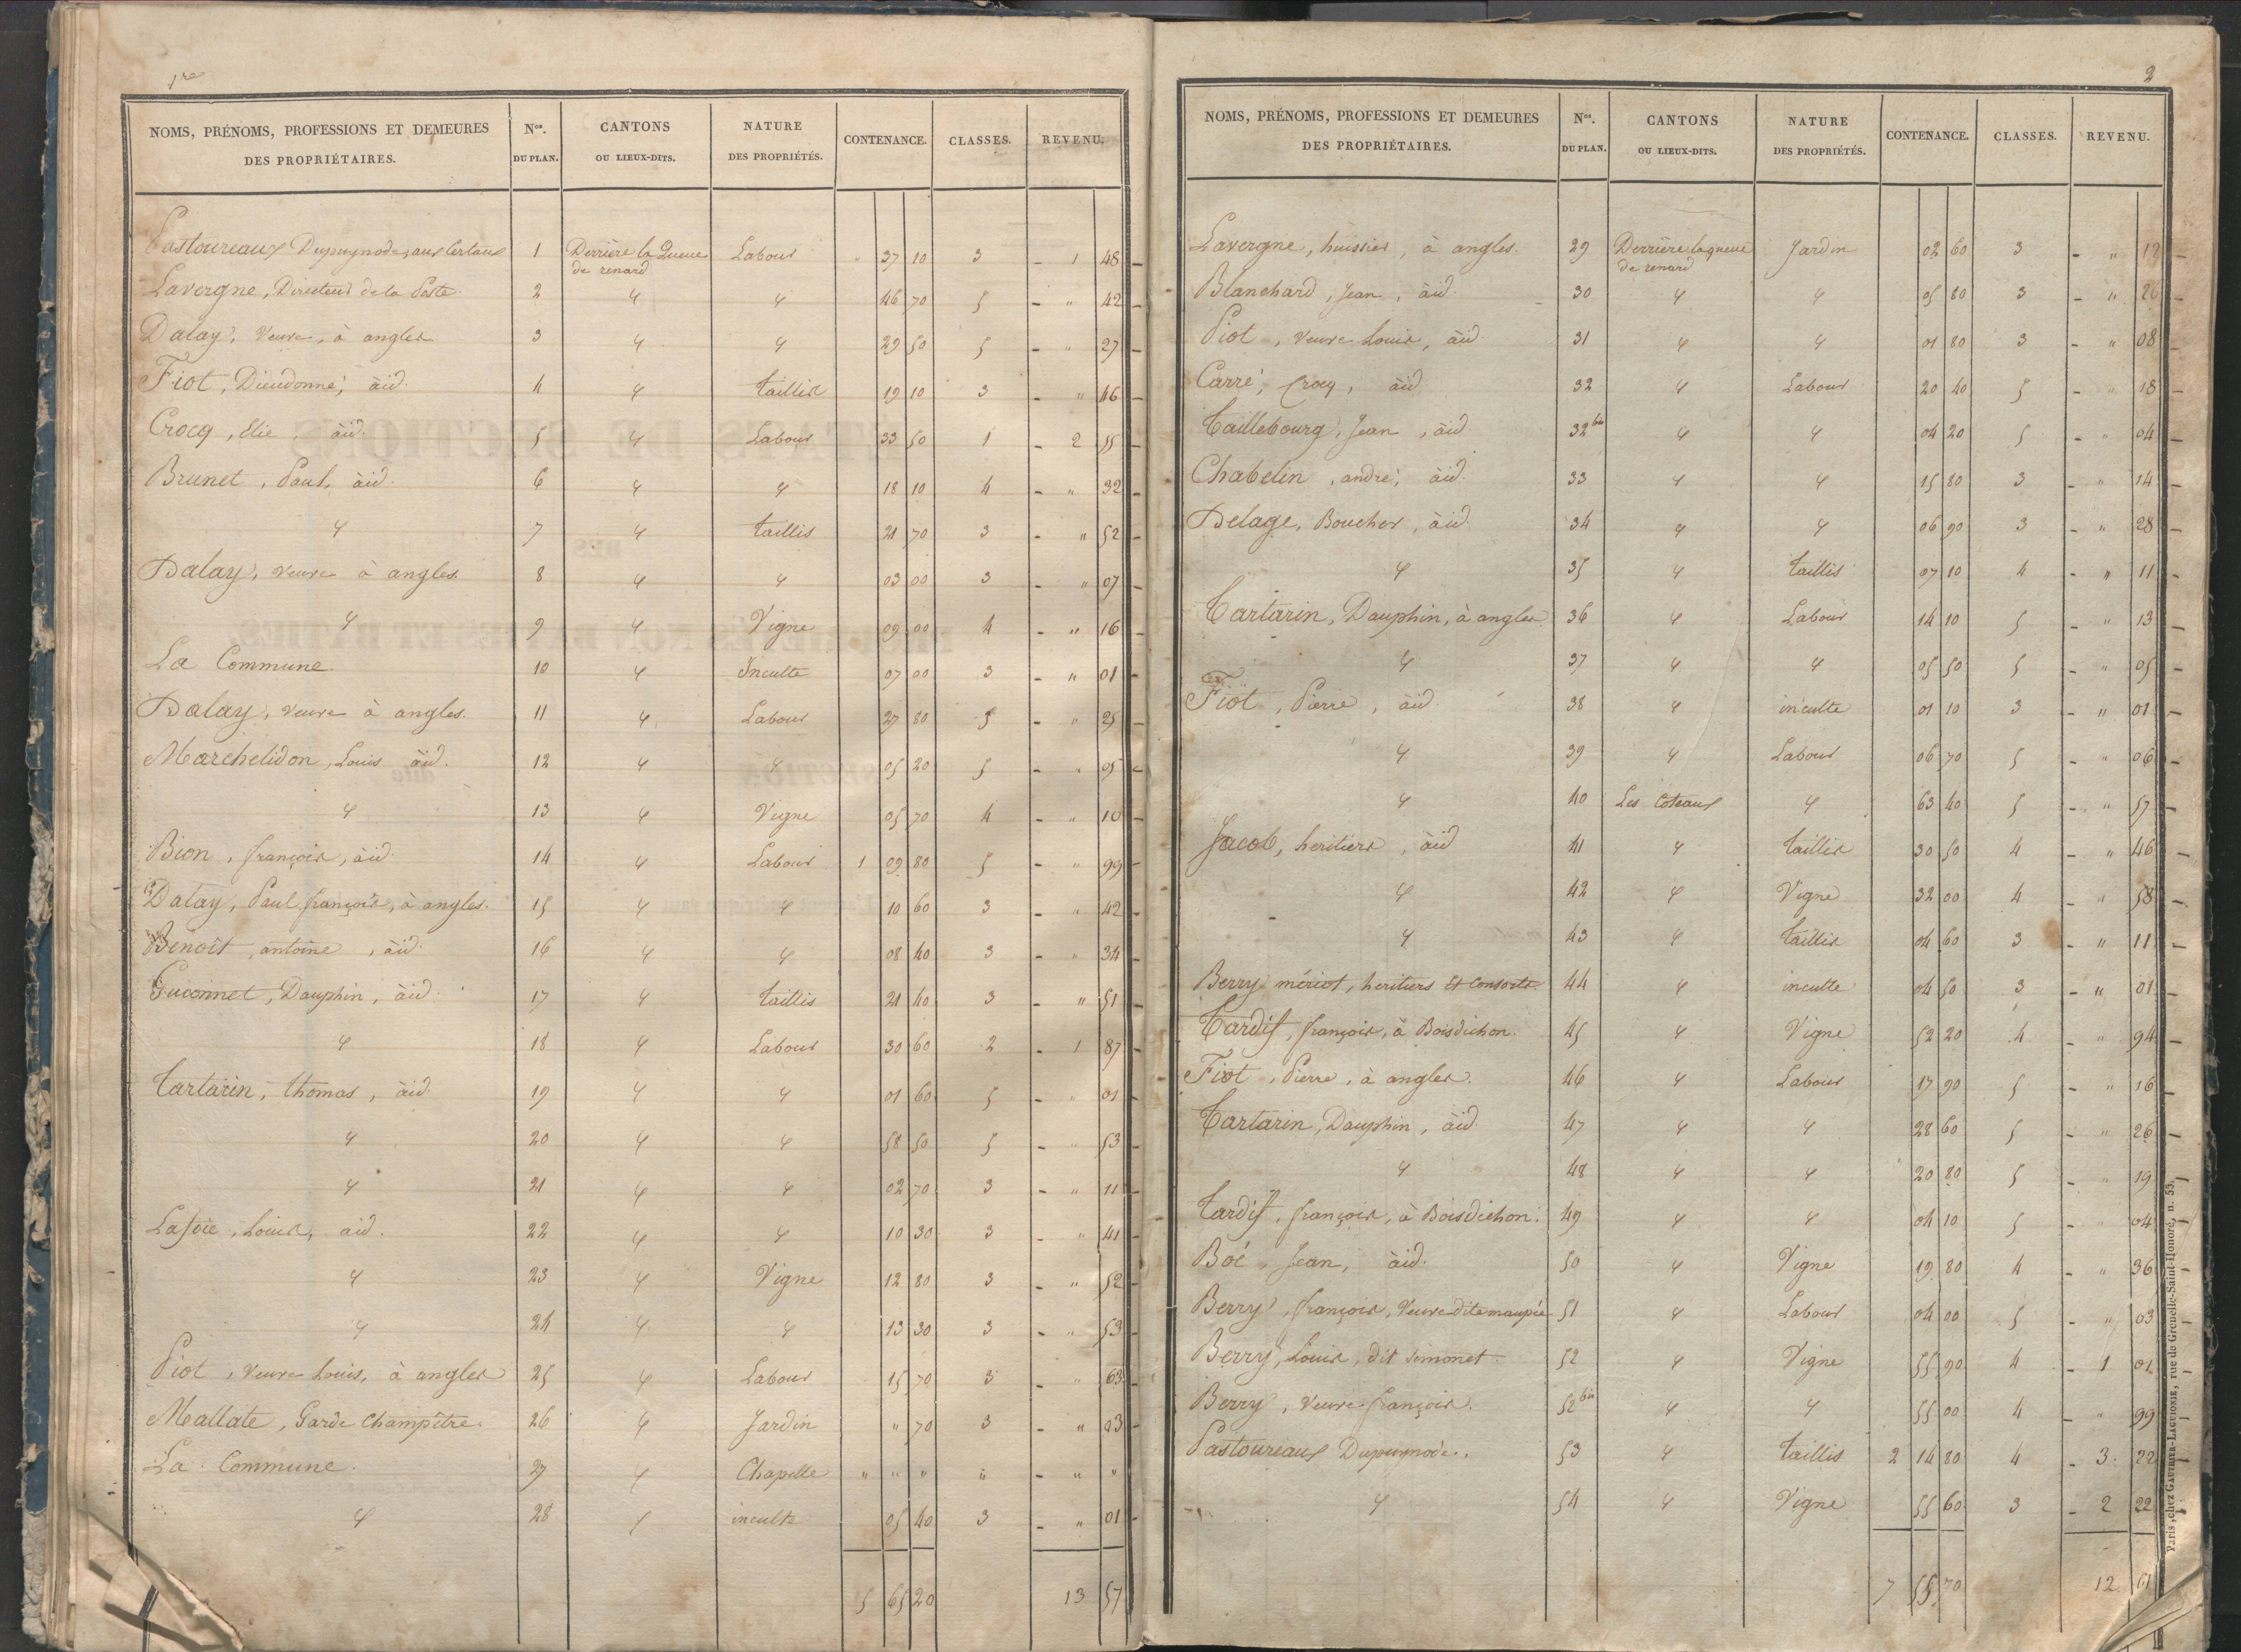 1re
NOMS, PRÉNOMS, PROFESSIONS ET DEMEURES DES PROPRIÉTAIRES. Nos. DU PLAN. CANTONS OU LIEUX-DITS. NATURE DES PROPRIÉTÉS. CONTENANCE. CLASSES. REVENU.
Pastoureaux Dupuynode, aux Certaux 1 Derrière la Queue de renard Labour " 37 10 3 - 1 48
Lavergne, Directeur de la Poste. 2 4 4 46 70 5 - " 42
Dalay, Veuve, à angles 3 4 4 29 50 5 - " 27
Fiot, Dieudonné, àid. 4 4 taillis 19 10 3 - " 46
Crocq, Elie, àid. 5 4 Labour 33 50 1 - 2 55
Brunet, Paul, àid. 6 4 4 18 10 4 - " 32
4 7 4 taillis 21 70 3 - " 52
Dalay, veuve à angles. 8 4 4 03 00 3 - " 07
4 9 4 Vigne 09 00 4 - " 16
La Commune. 10 4 Inculte 07 00 3 - " 01
Dalay, veuve à angles. 11 4 Labour 27 80 5 - " 25
Marchelidon, Louis àid. 12 4 4 05 20 5 - " 05
4 13 4 Vigne 05 70 4 - " 10
Bion, françois, àid. 14 4 Labour 1 09 80 5 - " 99
Dalay, Paul françois, à angles. 15 4 4 10 60 3 - " 42
Benoit, antoine, àid. 16 4 4 08 40 3 - " 34
Guionnet, Dauphin, àid. 17 4 taillis 21 40 3 - " 51
4 18 4 Labour 30 60 2 - 1 87
Tartarin, thomas, àid. 19 4 4 01 60 5 - " 01
4 20 4 4 58 50 5 - " 53
4 21 4 4 02 70 3 - " 11
Lafoie, Louis, aid. 22 4 4 10 30 3 - " 41
4 23 4 Vigne 12 80 3 - " 52
4 24 4 4 13 30 3 - " 53
Piot, veuve Louis, à angles 25 4 Labour 15 70 3 - " 63
Mallate, Garde Champêtre. 26 4 Jardin " 70 3 - " 03
La Commune. 27 4 Chapelle " " " " - " "
4 28 4 inculte 05 40 3 - " 01
5 65 20 13 57
2
NOMS, PRÉNOMS, PROFESSIONS ET DEMEURES DES PROPRIÉTAIRES. Nos. DU PLAN. CANTONS OU LIEUX-DITS. NATURE DES PROPRIÉTÉS. CONTENANCE. CLASSES. REVENU.
Lavergne, huissier, à angles. 29 Derrière la queue de renard Jardin 02 60 3 - " 12
Blanchard, Jean, àid. 30 4 4 05 80 3 - " 26
Piot, veuve Louis, àid. 31 4 4 01 80 3 - " 08
Carré, Crocq, àid 32 4 Labour 20 40 5 - " 18
Taillebourg, Jean, àid. 32 bis 4 4 04 20 5 - " 04
Chabelin, andré, àid. 33 4 4 15 80 3 - " 14
Delage, Boucher, àid. 34 4 4 06 90 3 - " 28
4 35 4 taillis 07 10 4 - " 11
Tartarin, Dauphin, à angles 36 4 Labour 14 10 5 - " 13
4 37 4 4 05 50 5 - " 05
Fiot, Pierre, àid. 38 4 inculte 01 10 3 - " 01
4 39 4 Labour 06 70 5 - " 06
4 40 Les Coteaux 4 63 40 5 - " 57
Jacob, heritiers, àid 41 4 taillis 30 50 4 - " 46
4 42 4 Vigne 32 00 4 - " 58
4 43 4 taillis 04 60 3 - " 11
Berry mériot, heritiers et Consorts. 44 4 inculte 04 50 3 - " 01
Tardif, françois, à Boisdichon. 45 4 Vigne 52 20 4 - " 94
Fiot, Pierre, à angles. 46 4 Labour 17 90 5 - " 16
Tartarin, Dauphin, àid. 47 4 4 28 60 5 - " 26
4 48 4 4 20 80 5 - " 19
Tardif, françois, à Boisdichon. 49 4 4 04 10 5 - " 04
Boé, Jean, àid. 50 4 Vigne 19 80 4 - " 36
Berry, françois, Veuve dite maupié 51 4 Labour 04 00 5 - " 03
Berry, Louis, dit simonet. 52 4 Vigne 55 90 4 - 1 01
Berry, veuve françois. 52 bis 4 4 55 00 4 - " 99
Pastoureaux Dupuynode. 53 4 taillis 2 14 80 4 - 3 22
4 54 4 Vigne 55 60 3 - 2 22
7 55 70 12 61
Paris, chez GAUTHIER-LAGUIONIE, rue de Grenelle-Saint-Honoré, n. 55.